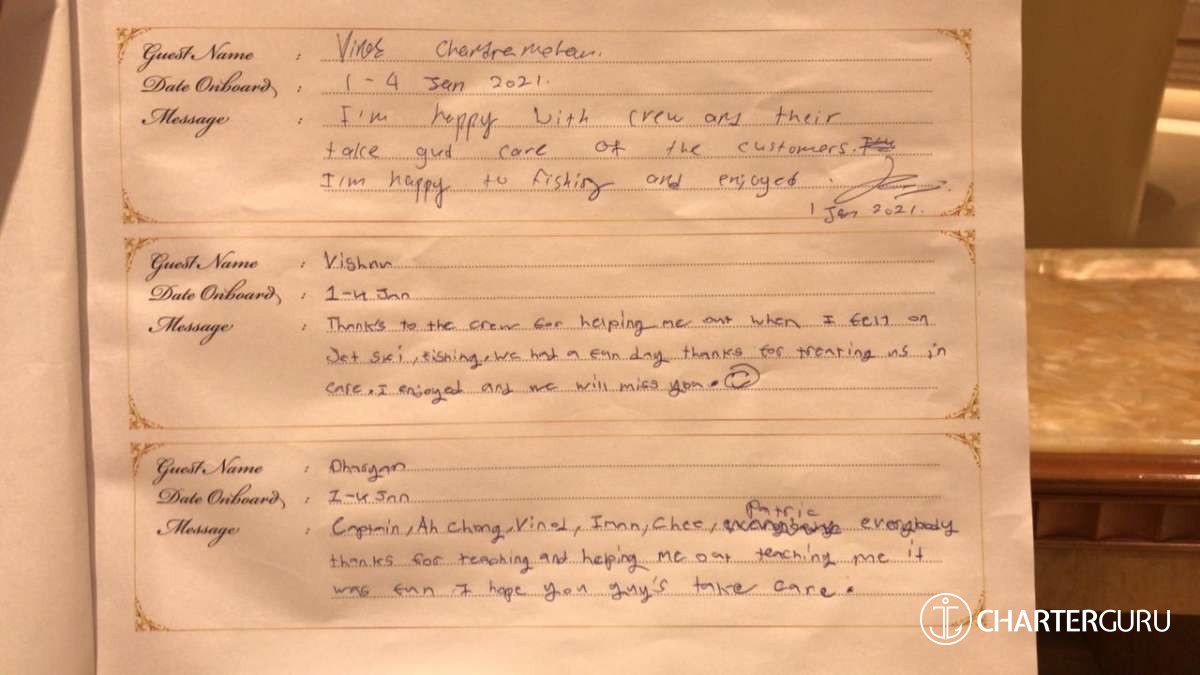 Guest Name : Vinod Chandramohan.
Date Onboard : 1 - 4 Jan 2021.
Message : I'm happy with crew and their
take gud care of the customers.
I'm happy to fishing and enjoyed.
1 Jan 2021.
Guest Name : Vishnu
Date Onboard : 1-4 Jan
Message : Thank's to the crew for helping me out when I fell on
Jet Ski, fishing, we had a fun day thanks for treating us in
care. I enjoyed and we will miss you.
Guest Name : Dhasyan
Date Onboard : 1-4 Jan
Patric
Message : Captain, Ah Chong, Vinod, Iman, Chee, everybody
thanks for teaching and helping me out teaching me it
was fun. I hope you guy's take care.
CHARTERGURU